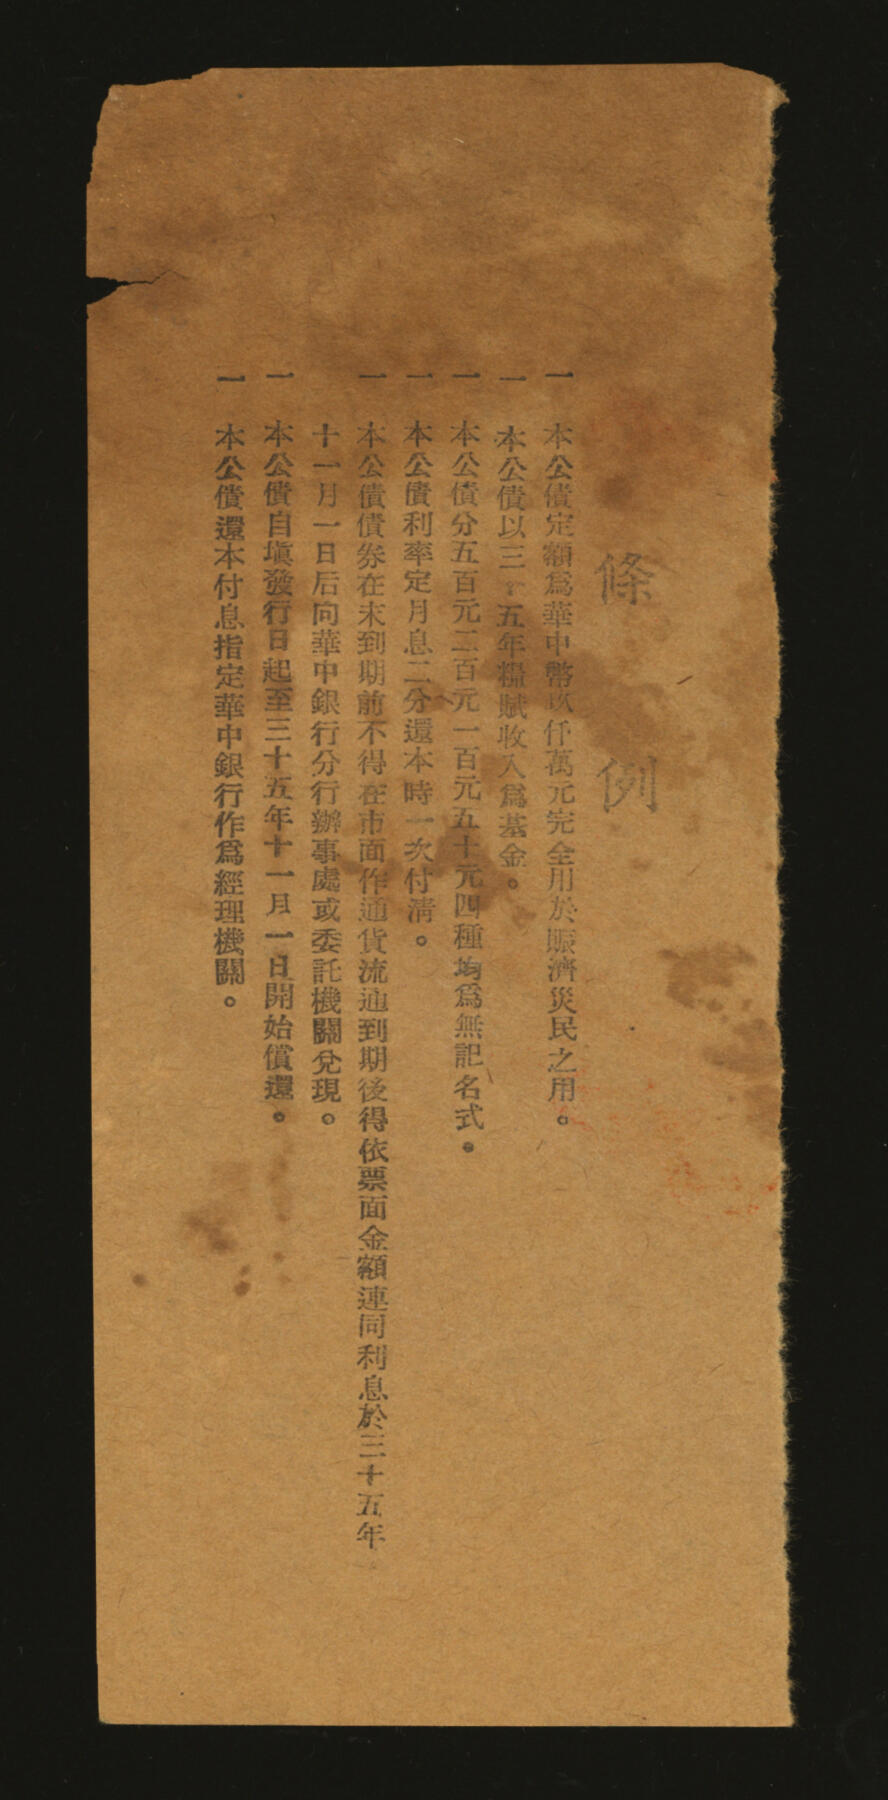 條例
一 本公債定額爲華中幣玖仟萬元完全用於賑濟災民之用。
一 本公債以三 五年糧賦收入爲基金。
一 本公債分五百元二百元一百元五十元四種均爲無記名式。
一 本公債利率定月息二分還本時一次付清。
一 本公債債券在未到期前不得在市面作通貨流通到期後得依票面金額連同利息於三十五年
十一月一日后向華中銀行分行辦事處或委託機關兌現。
一 本公債自塡發行日起至三十五年十一月一日開始償還。
一 本公債還本付息指定華中銀行作爲經理機關。